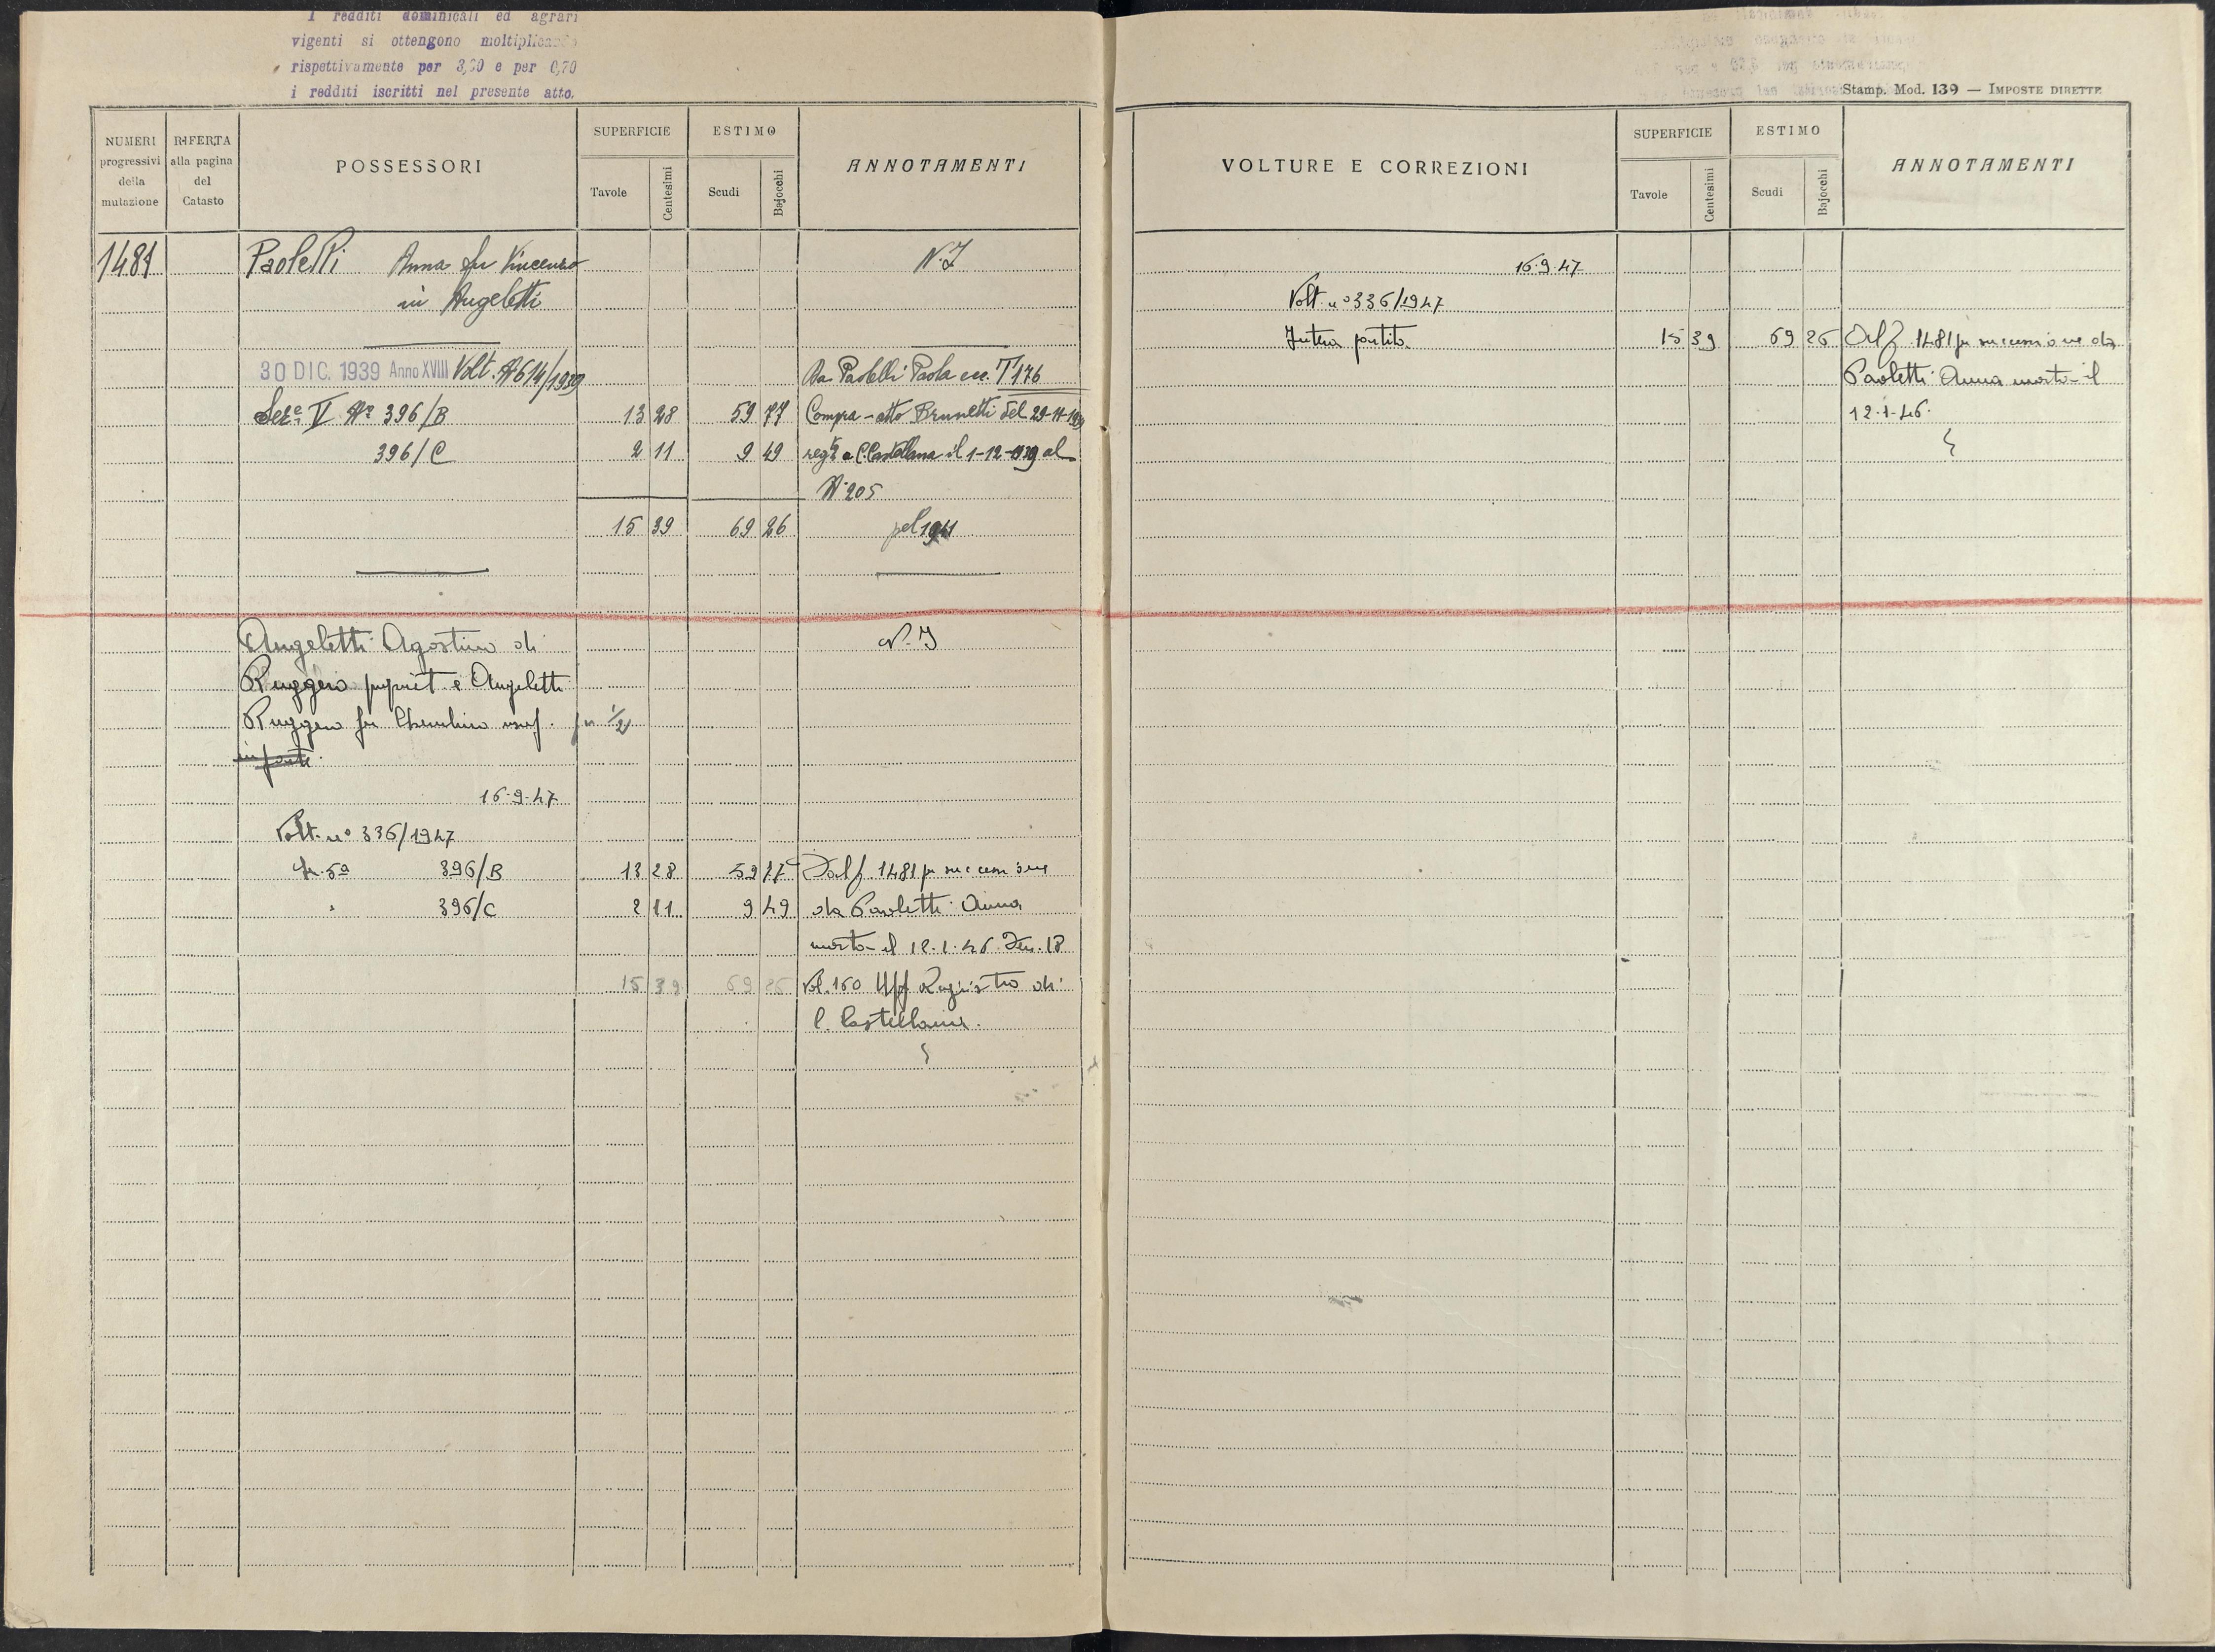 I redditi dominicali ed agrari
vigenti si ottengono moltiplicando
rispettivamente per 3,20 e per 0,70
i redditi iscritti nel presente atto.
NUMERI progressivi della mutazione
RIFERTA alla pagina del Catasto
POSSESSORI
SUPERFICIE
Tavole Centesimi
ESTIMO
Scudi Bajocchi
ANNOTAMENTI
1481 Paoletti Anna fu Vincenzo N. I
in Angeletti
30 DIC. 1939 Anno XVIII Volt. N 614/1939 Da Paoletti Paola T 176
Sez.e V N° 396/B 13 28 59 77 Compra - atto Brunetti del 29-11-1939
396/C 2 11 9 49 reg.to a C. Castellana il 1-12-1939 al
N° 205
15 39 69 26 pel 1941
Angeletti Agostino di N. I
Ruggero propriet. e Angeletti
Ruggero fu Cherubino usuf. per 1/2
in parte
16-9-47
Volt. n° 336/1947
Sez. 5a 396/B 13 28 59 77 Dal f. 1481 per successione
" 396/C 2 11 9 49 da Paoletti Anna
morta il 12.1.46. Den. 18
15 39 69 26 Vol. 160 Uff Registro di
C. Castellana.
Stamp. Mod. 139 — IMPOSTE DIRETTE
VOLTURE E CORREZIONI
SUPERFICIE
Tavole Centesimi
ESTIMO
Scudi Bajocchi
ANNOTAMENTI
16.9.47
Volt. n° 336/1947
Intera partita 15 39 69 26 Al f. 1481 per successione da
Paoletti Anna morta il
12.1.46.